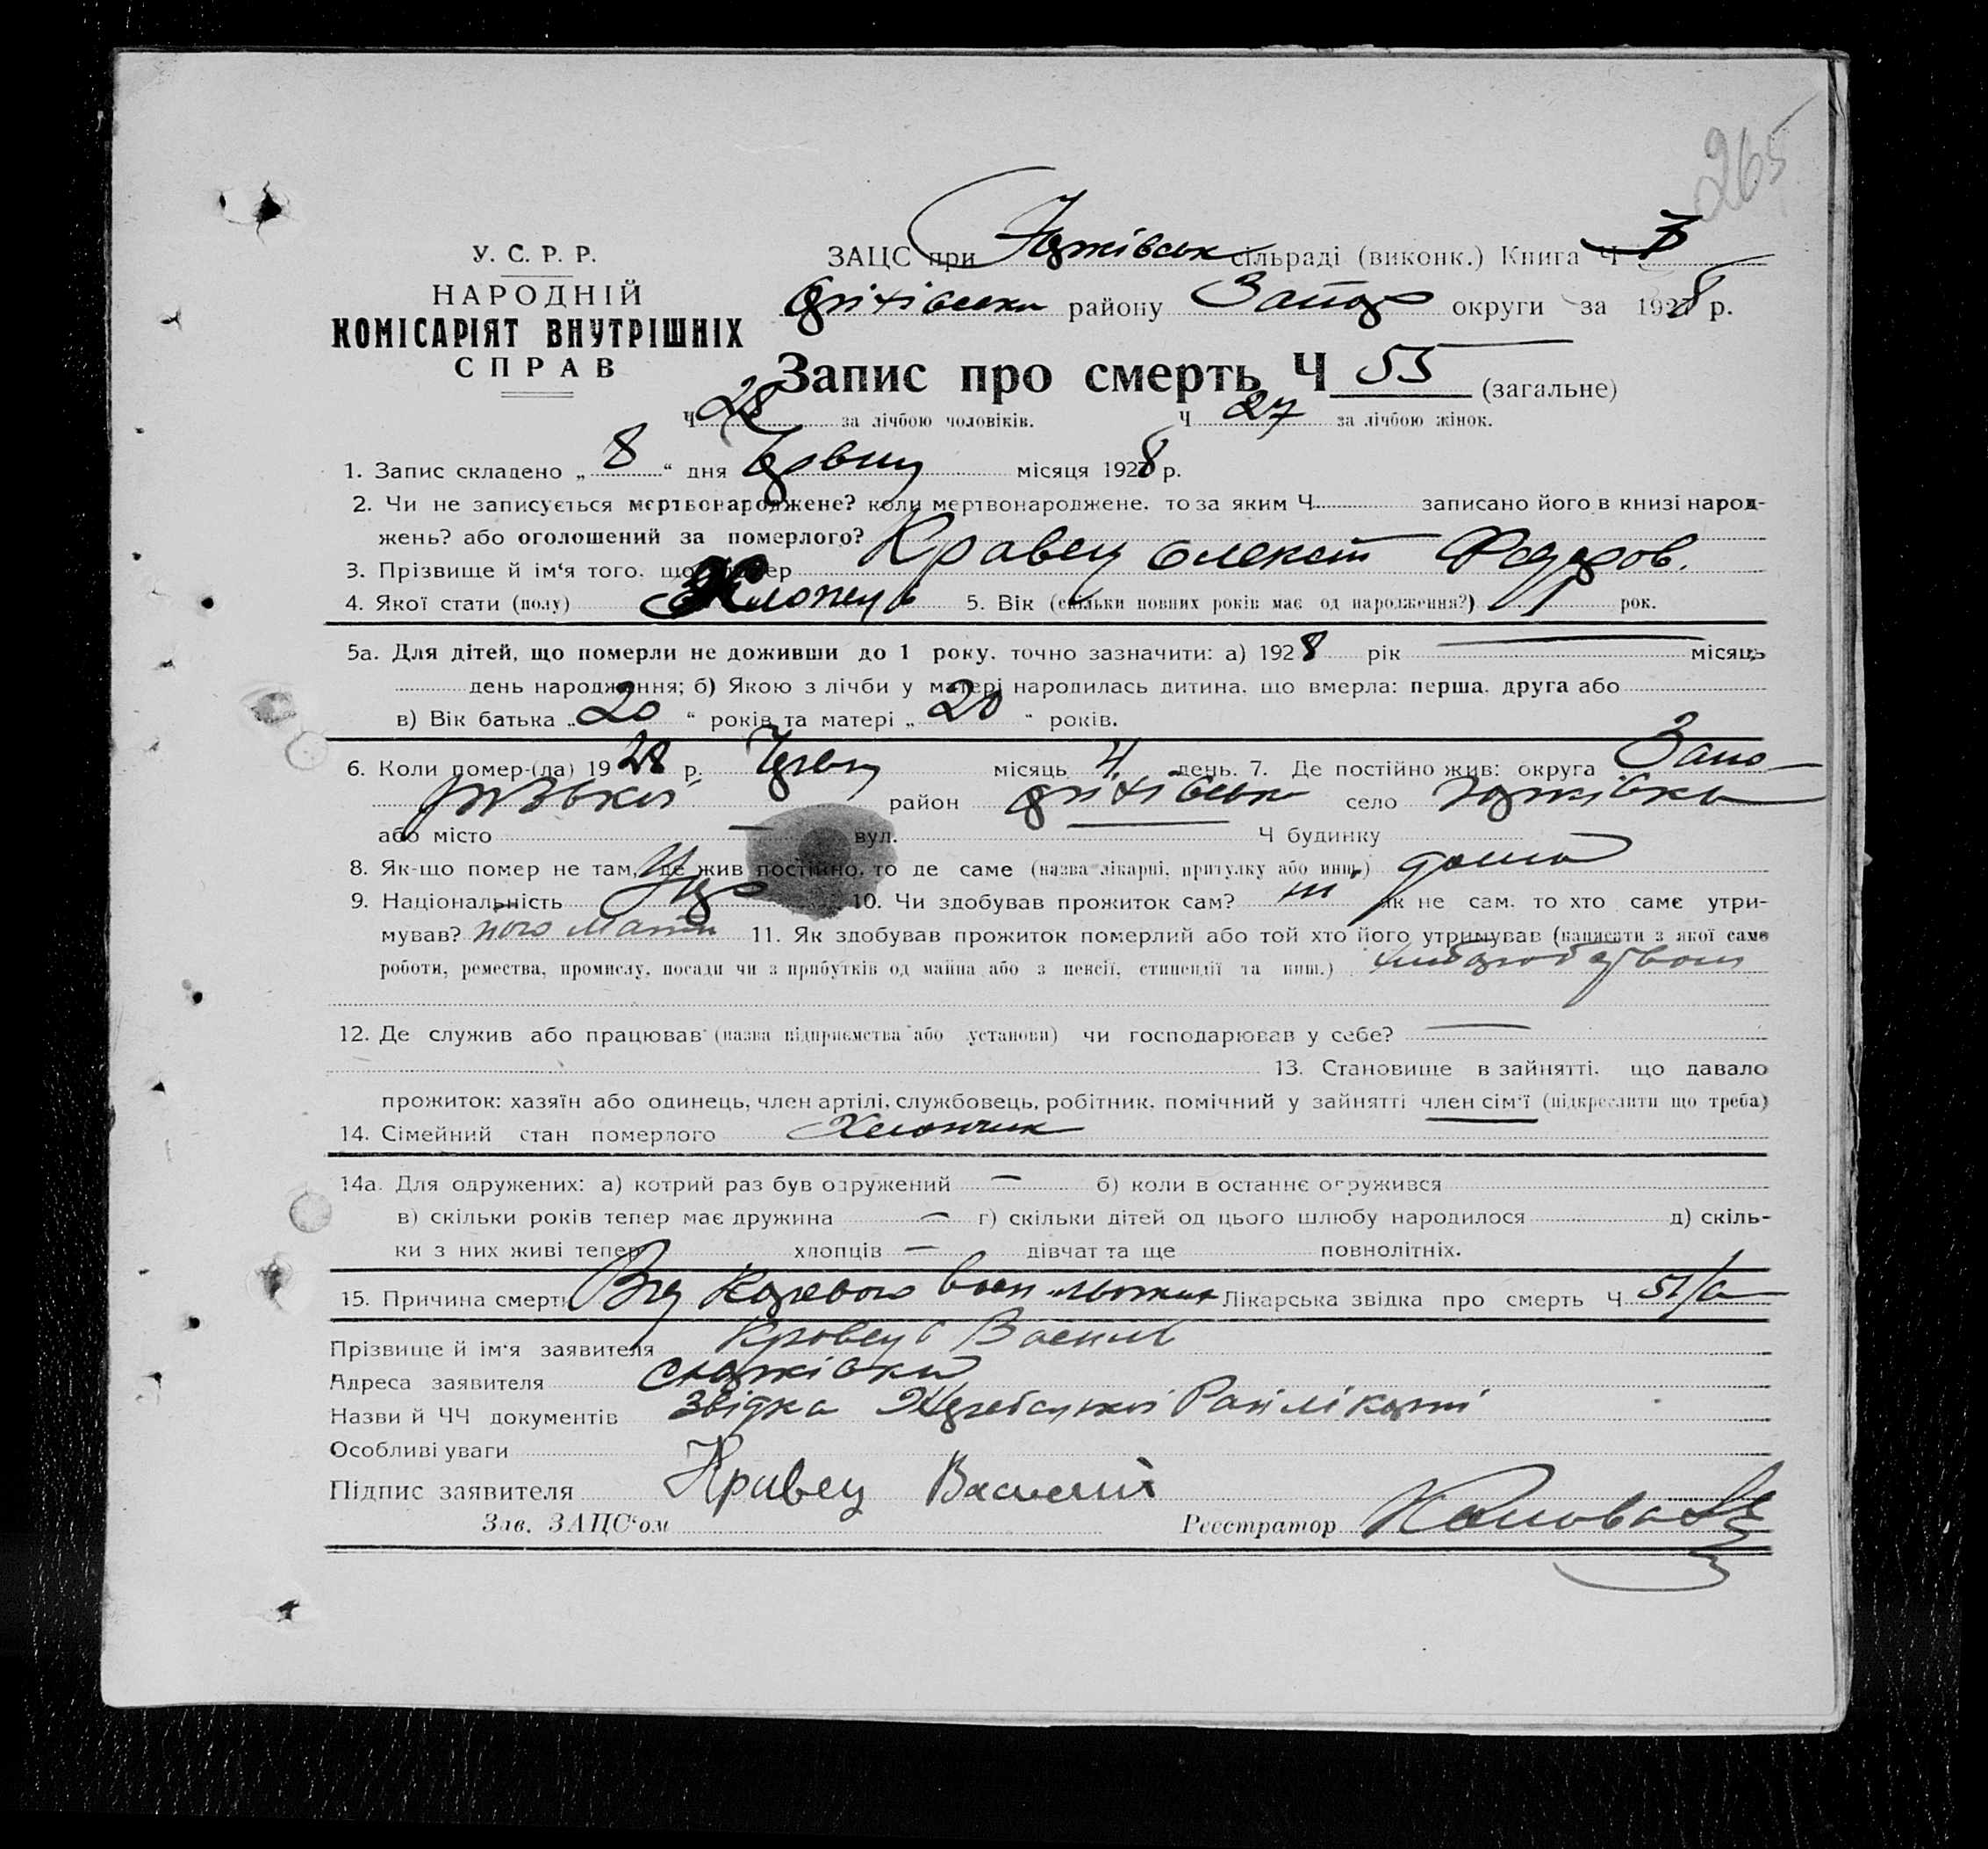 265
У. С. Р. Р.
НАРОДНІЙ
КОМІСАРІЯТ ВНУТРІШНІХ
СПРАВ
ЗАЦС при сільраді (виконк.) Книга Ч
району округи за 1928 р.
Запис про смерть Ч 55 (загальне)
Ч 28 за лічбою чоловіків. Ч 27 за лічбою жінок.
1. Запис складено „ 8 “ дня місяця 1928 р.
2. Чи не записується мертвонароджене? коли мертвонароджене, то за яким Ч записано його в книзі народ-
жень? або оголошений за померлого?
3. Прізвище й ім‘я того, що помер Кравец Олексій Федоров.
4. Якої стати (полу) Хлопець 5. Вік (скільки повних років має од народження?) 1 рок.
5а. Для дітей, що померли не доживши до 1 року, точно зазначити: а) 1928 рік — місяць
день народження; б) Якою з лічби у матері народилась дитина, що вмерла: перша, друга або
в) Вік батька „ 20 “ років та матері „ 20 “ років.
6. Коли помер-(ла) 1928 р. місяць 4 день. 7. Де постійно жив: округа Запо-
район село
або місто — вул. Ч будинку
8. Як-що помер не там, де жив постійно, то де саме (назва лікарні, притулку або инш.) дома
9. Національність Укр 10. Чи здобував прожиток сам? ні Як не сам, то хто саме утри-
мував? його мати 11. Як здобував прожиток померлий або той хто його утримував (написати з якої саме
роботи, ремества, промислу, посади чи з прибутків од майна або з пенсії, стипендії та инш.)
12. Де служив або працював (назва підприємства або установи) чи господарював у себе? —
13. Становище в зайнятті, що давало
прожиток: хазяїн або одинець, член артілі, службовець, робітник, помічний у зайнятті член сім‘ї (підкреслити що треба)
14. Сімейний стан померлого Хлопчик
14а. Для одружених: а) котрий раз був одружений — б) коли в останнє одружився
в) скільки років тепер має дружина — г) скільки дітей од цього шлюбу народилося д) скіль-
ки з них живі тепер хлопців — дівчат та ще повнолітніх.
15. Причина смерти Від Лікарська звідка про смерть Ч 51/а
Прізвище й ім‘я заявителя Кравець Василь
Адреса заявителя
Назви й ЧЧ документів Звідка Жеребецької Рай лікарні
Особливі уваги
Підпис заявителя Кравец Василий
Зав. ЗАЦС‘ом Реєстратор